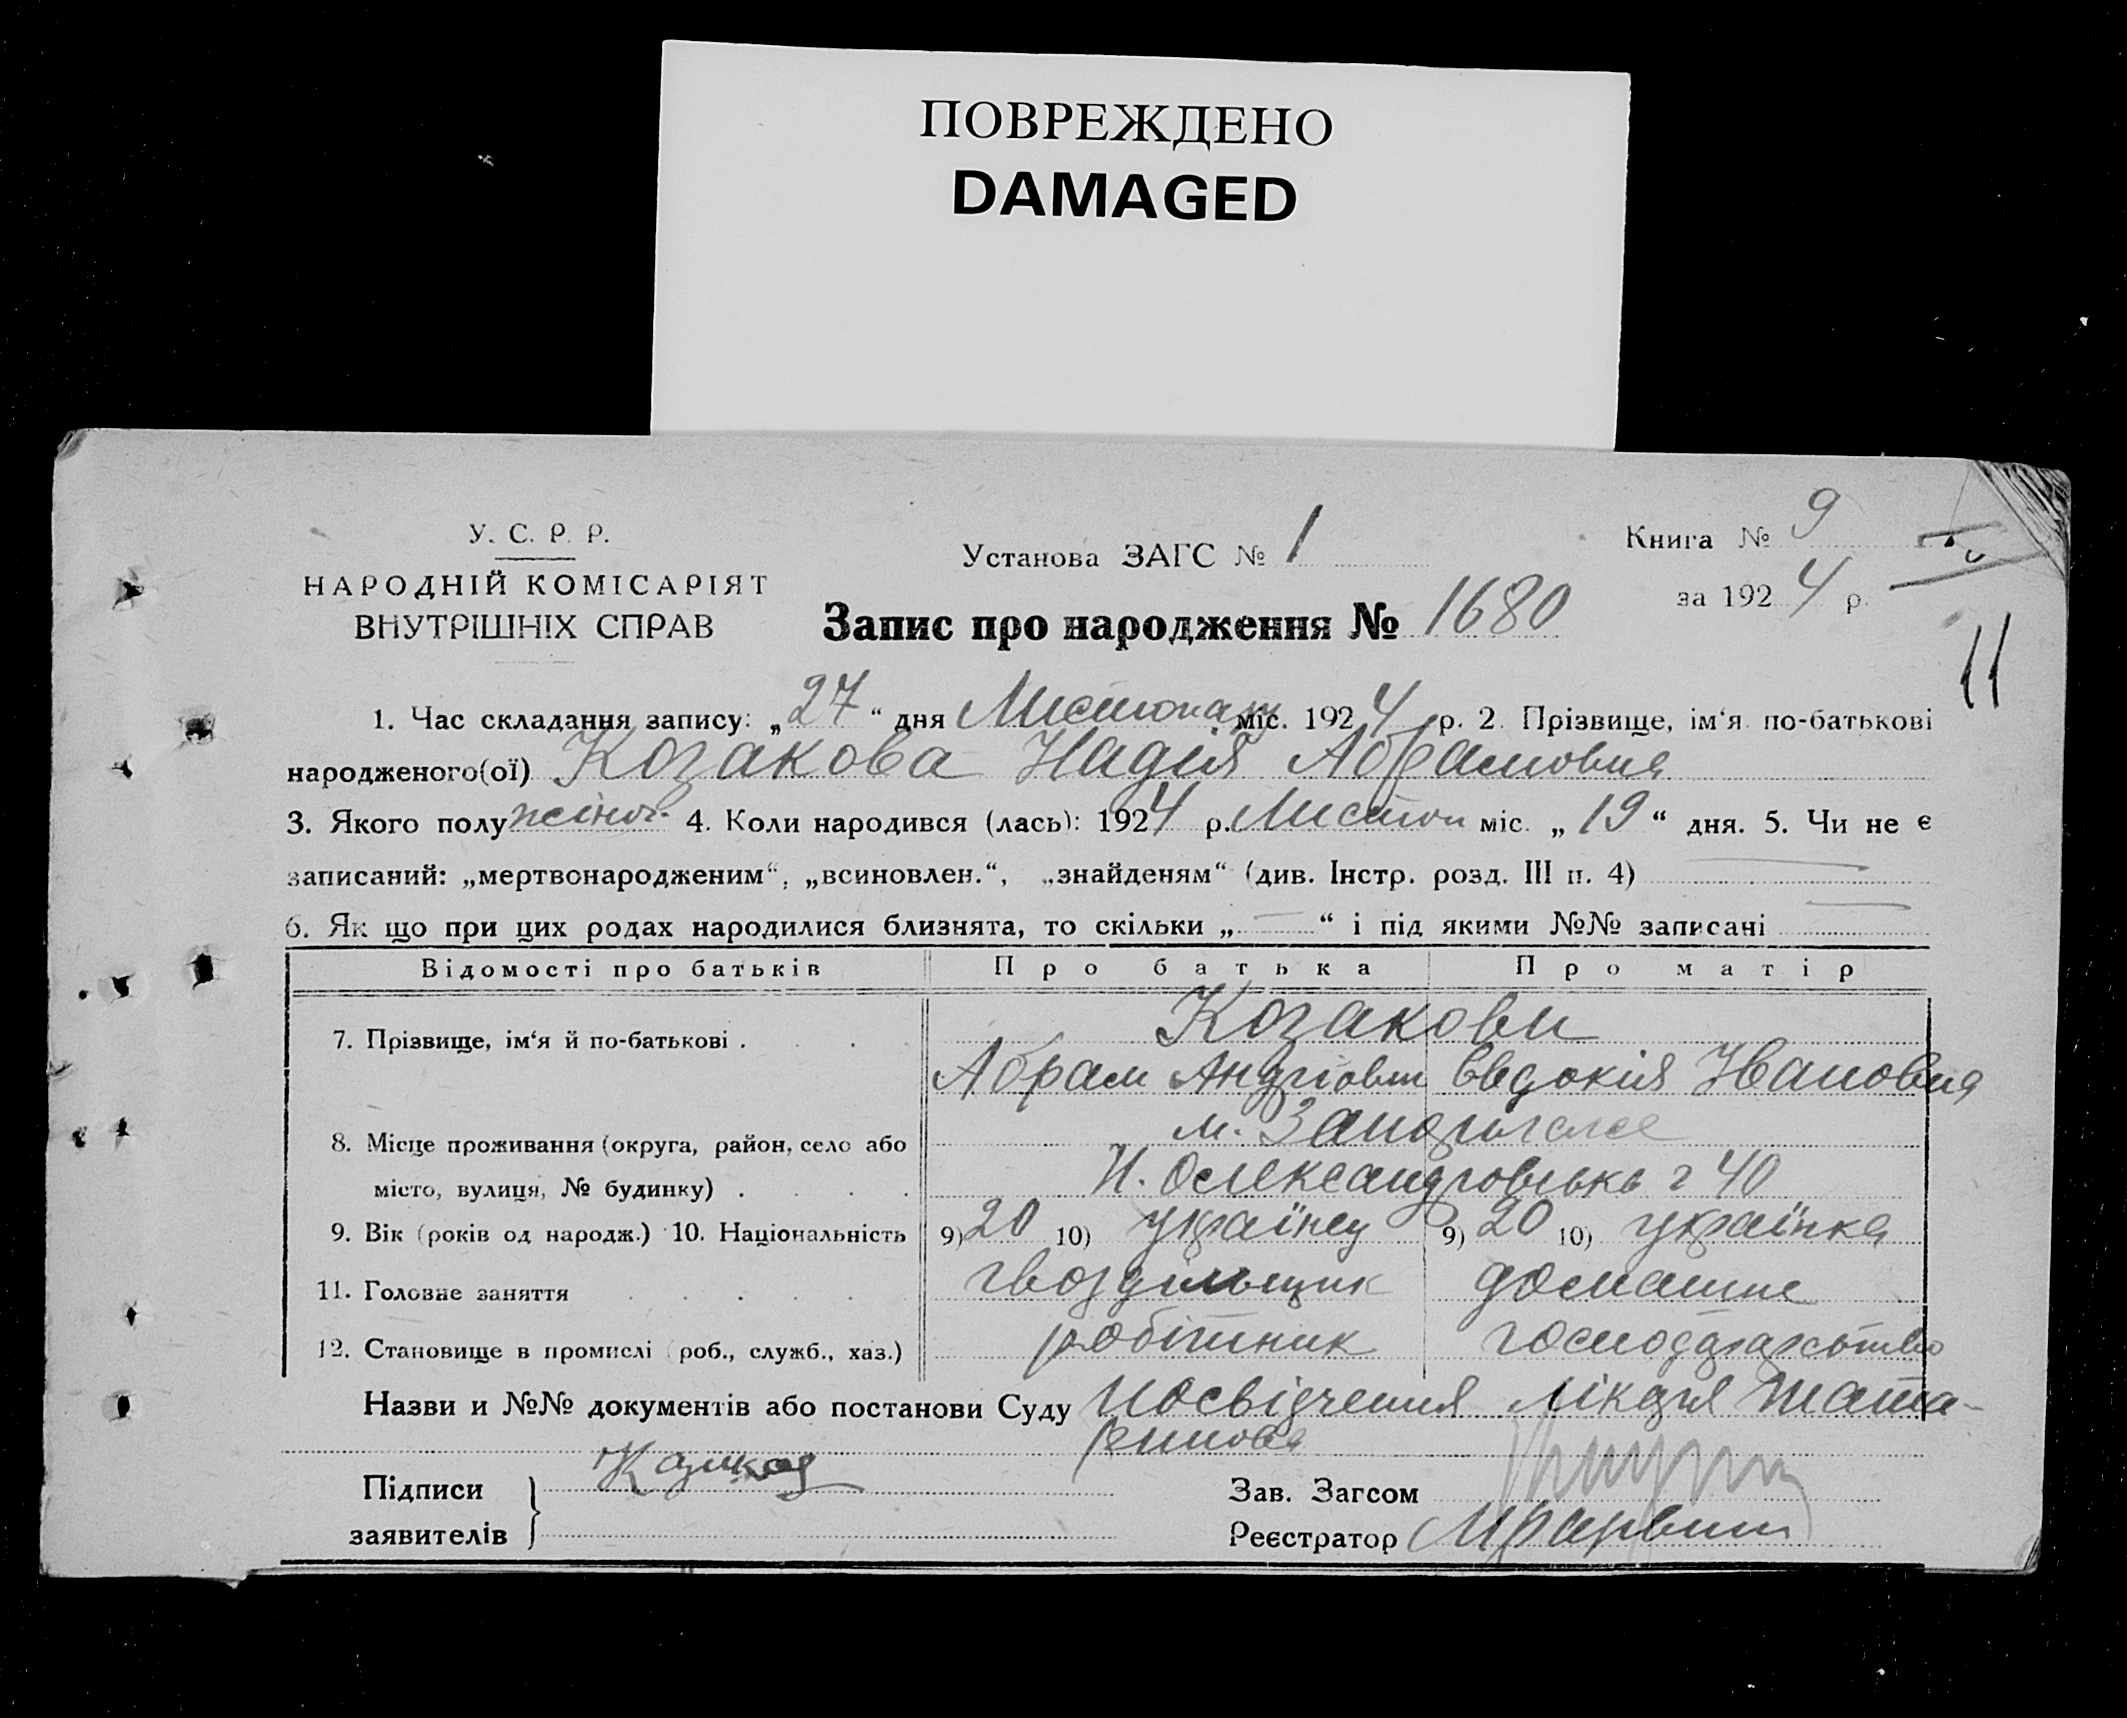 ПОВРЕЖДЕНО
DAMAGED
У. С. Р. Р.
НАРОДНІЙ КОМІСАРІЯТ
ВНУТРІШНІХ СПРАВ
Установа ЗАГС № 1
Книга № 9
за 1924 р.
Запис про народження № 1680
11
1. Час складання запису: „27“ дня Листопаду міс. 1924 р. 2. Прізвище, ім‘я по-батькові
народженого(ої) Козакова Надія Абрамовна
3. Якого полу жіноч. 4. Коли народився (лась): 1924 р. Листоп міс. „19“ дня. 5. Чи не є
записаний: „мертвонародженим“, „всиновлен.“, „знайденям“ (див. Інстр. розд. III п. 4)
6. Як що при цих родах народилися близнята, то скільки „—“ і під якими №№ записані —
Відомості про батьків Про батька Про матір
7. Прізвище, ім‘я й по-батькові . . . Козакови
Абрам Андрієвич Євдокія Івановна
8. Місце проживання (округа, район, село або м. Запоріжжє
місто, вулиця, № будинку) . . . . Н. Олександровська 40
9. Вік (років од народж.) 10. Національність 9) 20 10) українец 9) 20 10) українка
11. Головне заняття . . . . . . гвоздильщик домашнє
12. Становище в промислі (роб., служб., хаз.) робітник господарство
Назви и №№ документів або постанови Суду Посвідчення лікаря Тата-
ринова
Підписи
заявителів
Зав. Загсом
Реєстратор